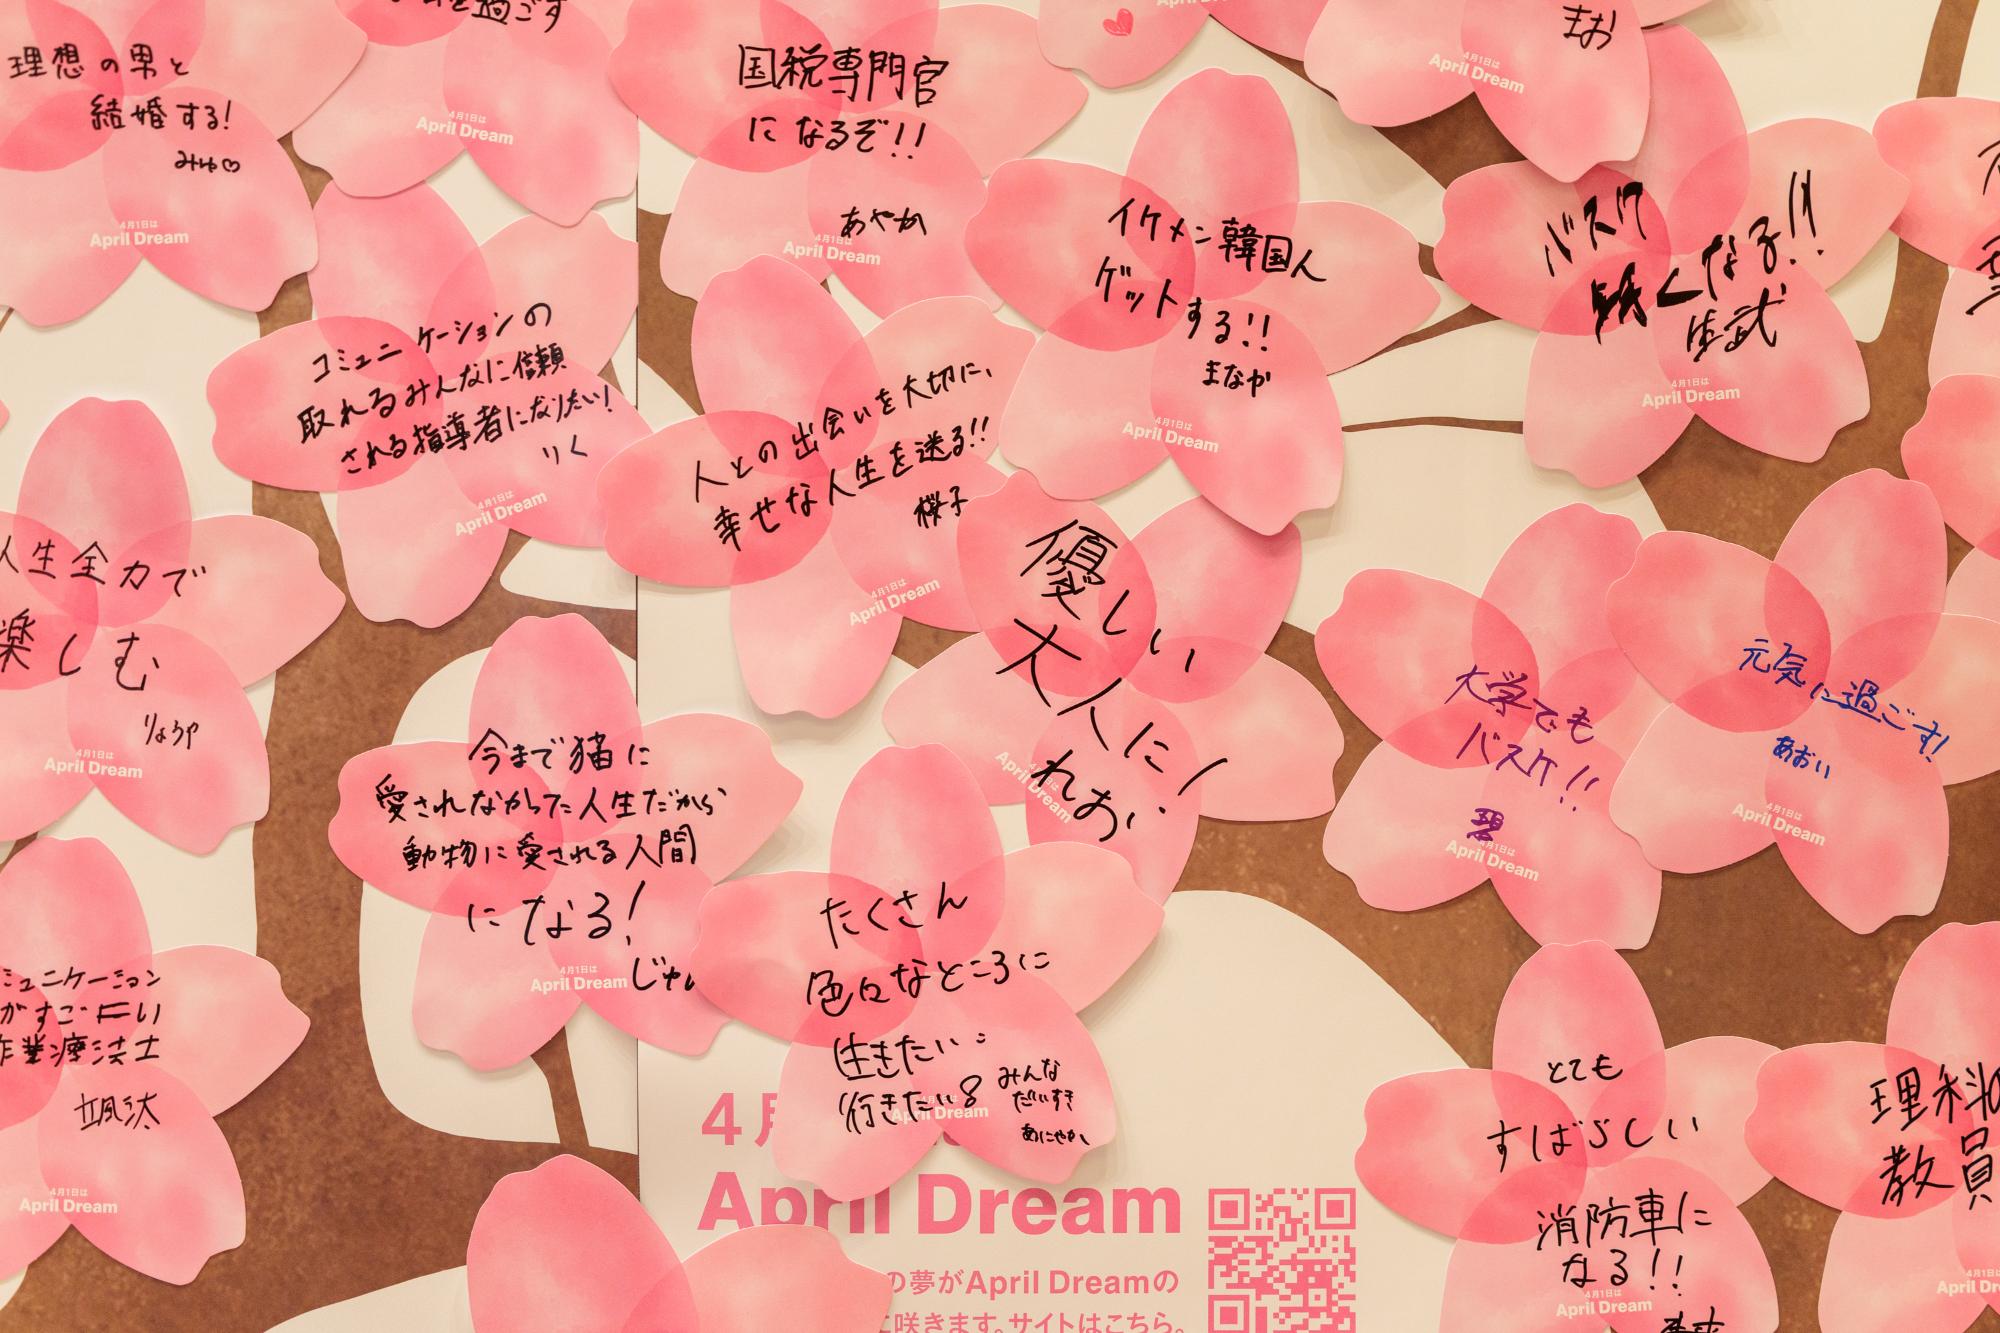 理想の男と
結婚する!
みゅ♡
4月1日は
April Dream
を過ごす
4月1日は
April Dream
国税専門官
になるぞ!!
あやか
4月1日は
April Dream
April Dream
まお
4月1日は
April Dream
イケメン韓国人
ゲットする!!
まなか
4月1日は
April Dream
バスケ
くなる!!
4月1日は
April Dream
コミュニケーションの
取れるみんなに信頼
される指導者になりたい!
りく
4月1日は
April Dream
人との出会いを大切に、
幸せな人生を送る!!
桜子
4月1日は
April Dream
人生全力で
楽しむ
りょうや
4月1日は
April Dream
優しい
大人に!
れお
4月1日は
April Dream
大学でも
バスケ!!
碧
4月1日は
April Dream
元気に過ごす!
あおい
4月1日は
April Dream
今まで猫に
愛されなかった人生だから
動物に愛される人間
になる!
じゅん
4月1日は
April Dream
たくさん
色々なところに
生きたい
行きたい
みんな
だいすき
April Dream
ミュニケーション
がすごーい
作業療法士
颯汰
4月1日は
April Dream
とても
すばらしい
消防車に
なる!!
4月1日は
April Dream
理科の
教員
4月1日は
April Dream
4月
April Dream
の夢がApril Dreamの
に咲きます。サイトはこちら。